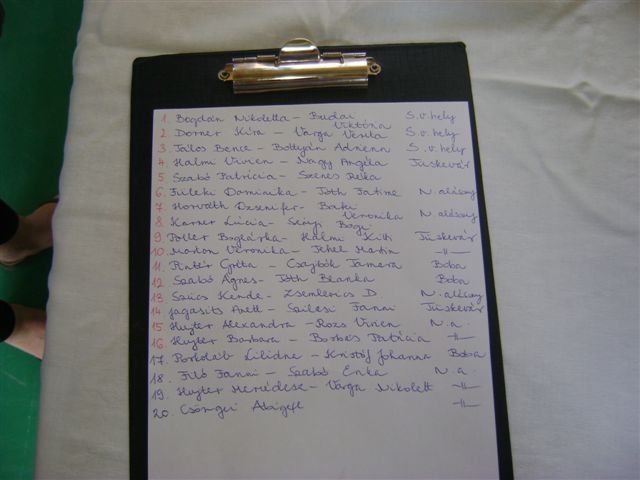 1. Bogdán Nikoletta - Budai Viktória S.v.hely
2. Dorner Kíra - Varga Veszta S.v.hely
3. Tálos Bence - Bottyán Adrienn S.v.hely
4. Halmi Vivien - Nagy Angéla Tüskevár
5. Szabó Patrícia - Szenes Réka
6. Füleki Dominika - Tóth Fatime N.alásony
7. Horváth Dzsenifer - Bata Veronika N.alásony
8. Karner Lúcia - Bogi
9. Poller Boglárka - Halmi Kitti Tüskevár
10. Marton Veronika - Fehél Martin -"-
11. Pintér Gréta - Csajbók Tamara Boba
12. Szabó Ágnes - Tóth Blanka Boba
13. Szűcs Kende - Zsemlerics D. N.alásony
14. Jagasits Anett - Szilasi Fanni Tüskevár
15. Hujter Alexandra - Rozs Vivien N.a.
16. Hujter Barbara - Borbés Patrícia -"-
17. Porkoláb Lilidne - Kristóf Johanna Boba
18. Filó Fanni - Szabó Enka N.a.
19. Hujter Mercédesz - Varga Nikolett -"-
20. Csöngei Abigél -"-